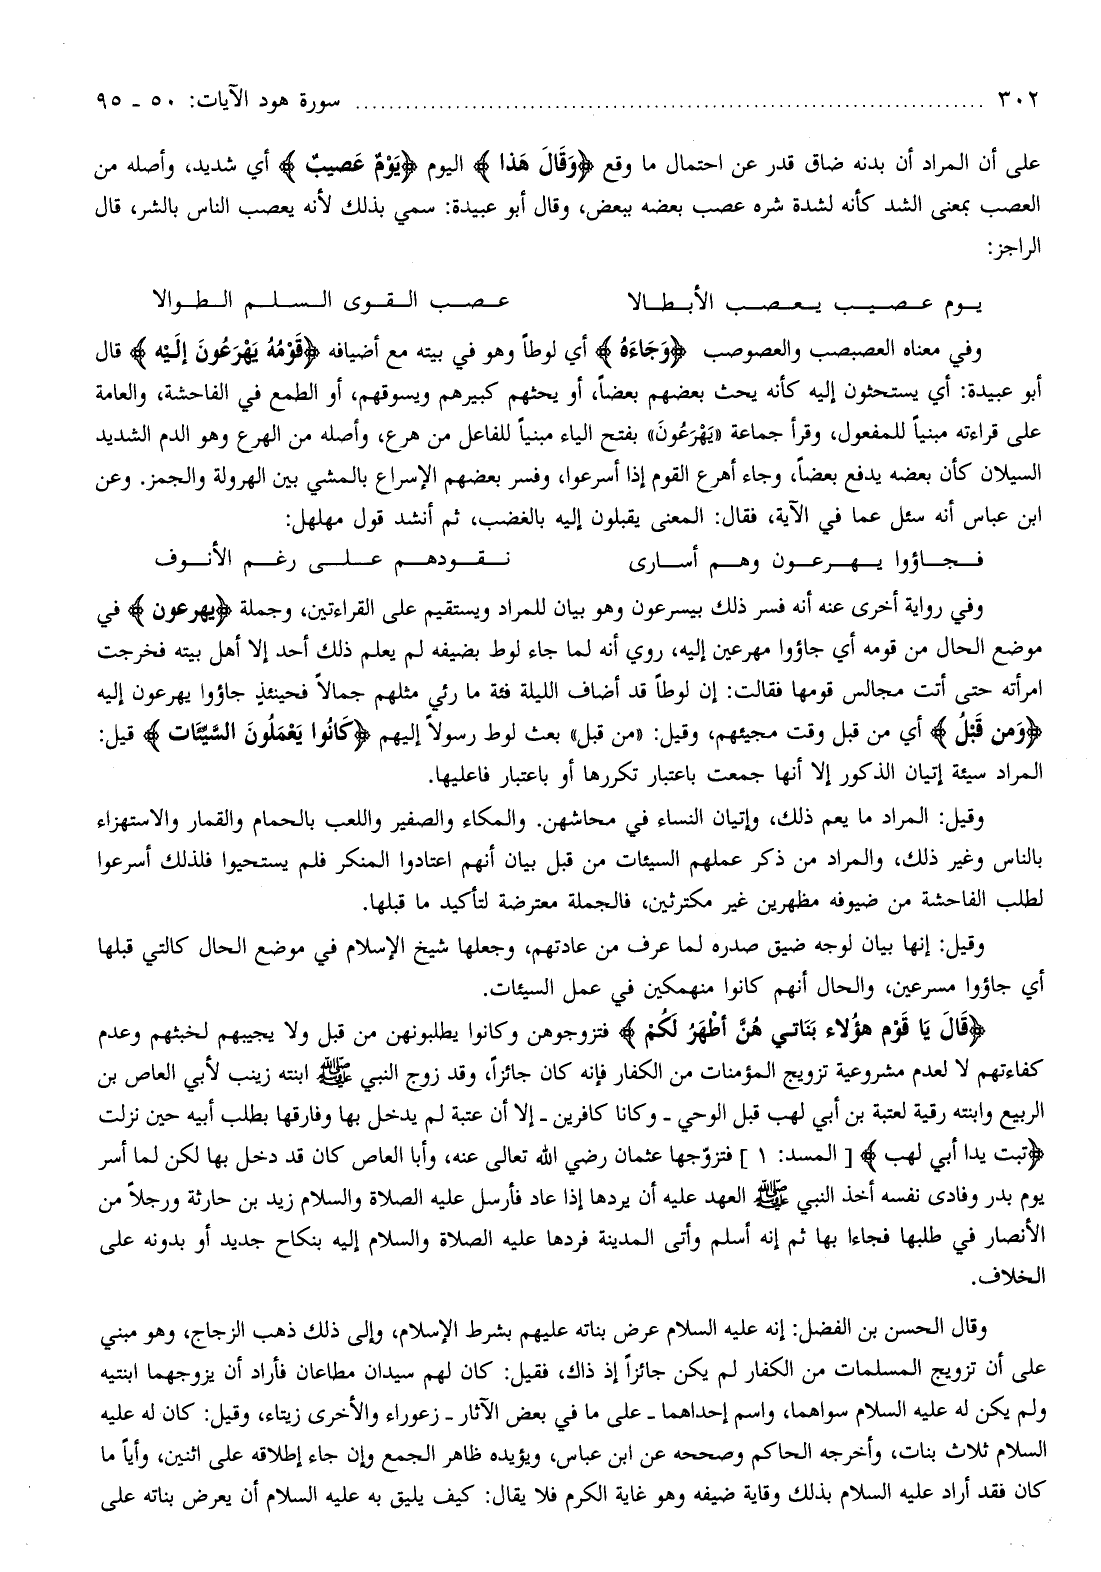 ٣٠٢ ........................................................ سورة هود الآيات: ٥٠ ـ ٩٥
على أن المراد أن بدنه ضاق قدر عن احتمال ما وقع ﴿وَقَالَ هَذا﴾ اليوم ﴿يَوْمٌ عَصيبٌ﴾ أي شديد، وأصله من
العصب بمعنى الشد كأنه لشدة شره عصب بعضه ببعض، وقال أبو عبيدة: سمي بذلك لأنه يعصب الناس بالشر، قال
الراجز:
يوم عصيب يعصب الأبطالا عصب القوى السلم الطوالا
وفي معناه العصبصب والعصوصب ﴿وَجَاءَهُ﴾ أي لوطاً وهو في بيته مع أضيافه ﴿قَوْمُهُ يَهْرَعُونَ إلَيْه﴾ قال
أبو عبيدة: أي يستحثون إليه كأنه يحث بعضهم بعضاً، أو يحثهم كبيرهم ويسوقهم، أو الطمع في الفاحشة، والعامة
على قراءته مبنياً للمفعول، وقرأ جماعة «يَهْرَعُونَ» بفتح الياء مبنياً للفاعل من هرع، وأصله من الهرع وهو الدم الشديد
السيلان كأن بعضه يدفع بعضاً، وجاء أهرع القوم إذا أسرعوا، وفسر بعضهم الإسراع بالمشي بين الهرولة والجمز. وعن
ابن عباس أنه سئل عما في الآية، فقال: المعنى يقبلون إليه بالغضب، ثم أنشد قول مهلهل:
فجاؤوا يهرعون وهم أسارى نقودهم على رغم الأنوف
وفي رواية أخرى عنه أنه فسر ذلك بيسرعون وهو بيان للمراد ويستقيم على القراءتين، وجملة ﴿يهرعون﴾ في
موضع الحال من قومه أي جاؤوا مهرعين إليه، روي أنه لما جاء لوط بضيفه لم يعلم ذلك أحد إلا أهل بيته فخرجت
امرأته حتى أتت مجالس قومها فقالت: إن لوطاً قد أضاف الليلة فئة ما رئي مثلهم جمالاً فحينئذٍ جاؤوا يهرعون إليه
﴿وَمن قَبْلُ﴾ أي من قبل وقت مجيئهم، وقيل: «من قبل» بعث لوط رسولاً إليهم ﴿كَانُوا يَعْمَلُونَ السَّيِّئَات﴾ قيل:
المراد سيئة إتيان الذكور إلا أنها جمعت باعتبار تكررها أو باعتبار فاعليها.
وقيل: المراد ما يعم ذلك، وإتيان النساء في محاشهن. والمكاء والصفير واللعب بالحمام والقمار والاستهزاء
بالناس وغير ذلك، والمراد من ذكر عملهم السيئات من قبل بيان أنهم اعتادوا المنكر فلم يستحيوا فلذلك أسرعوا
لطلب الفاحشة من ضيوفه مظهرين غير مكترثين، فالجملة معترضة لتأكيد ما قبلها.
وقيل: إنها بيان لوجه ضيق صدره لما عرف من عادتهم، وجعلها شيخ الإسلام في موضع الحال كالتي قبلها
أي جاؤوا مسرعين، والحال أنهم كانوا منهمكين في عمل السيئات.
﴿قَالَ يَا قَوْم هؤُلاء بَنَاتي هُنَّ أطْهَرُ لَكُمْ﴾ فتزوجوهن وكانوا يطلبونهن من قبل ولا يجيبهم لخبثهم وعدم
كفاءتهم لا لعدم مشروعية تزويج المؤمنات من الكفار فإنه كان جائزاً، وقد زوج النبي ﷺ ابنته زينب لأبي العاص بن
الربيع وابنته رقية لعتبة بن أبي لهب قبل الوحي ـ وكانا كافرين ـ إلا أن عتبة لم يدخل بها وفارقها بطلب أبيه حين نزلت
﴿تبت يدا أبي لهب﴾ [ المسد: ١ ] فتزوّجها عثمان رضي الله تعالى عنه، وأبا العاص كان قد دخل بها لكن لما أسر
يوم بدر وفادى نفسه أخذ النبي ﷺ العهد عليه أن يردها إذا عاد فأرسل عليه الصلاة والسلام زيد بن حارثة ورجلاً من
الأنصار في طلبها فجاءا بها ثم إنه أسلم وأتى المدينة فردها عليه الصلاة والسلام إليه بنكاح جديد أو بدونه على
الخلاف.
وقال الحسن بن الفضل: إنه عليه السلام عرض بناته عليهم بشرط الإسلام، وإلى ذلك ذهب الزجاج، وهو مبني
على أن تزويج المسلمات من الكفار لم يكن جائزاً إذ ذاك، فقيل: كان لهم سيدان مطاعان فأراد أن يزوجهما ابنتيه
ولم يكن له عليه السلام سواهما، واسم إحداهما ـ على ما في بعض الآثار ـ زعوراء والأخرى زيتاء، وقيل: كان له عليه
السلام ثلاث بنات، وأخرجه الحاكم وصححه عن ابن عباس، ويؤيده ظاهر الجمع وإن جاء إطلاقه على اثنين، وأياً ما
كان فقد أراد عليه السلام بذلك وقاية ضيفه وهو غاية الكرم فلا يقال: كيف يليق به عليه السلام أن يعرض بناته على